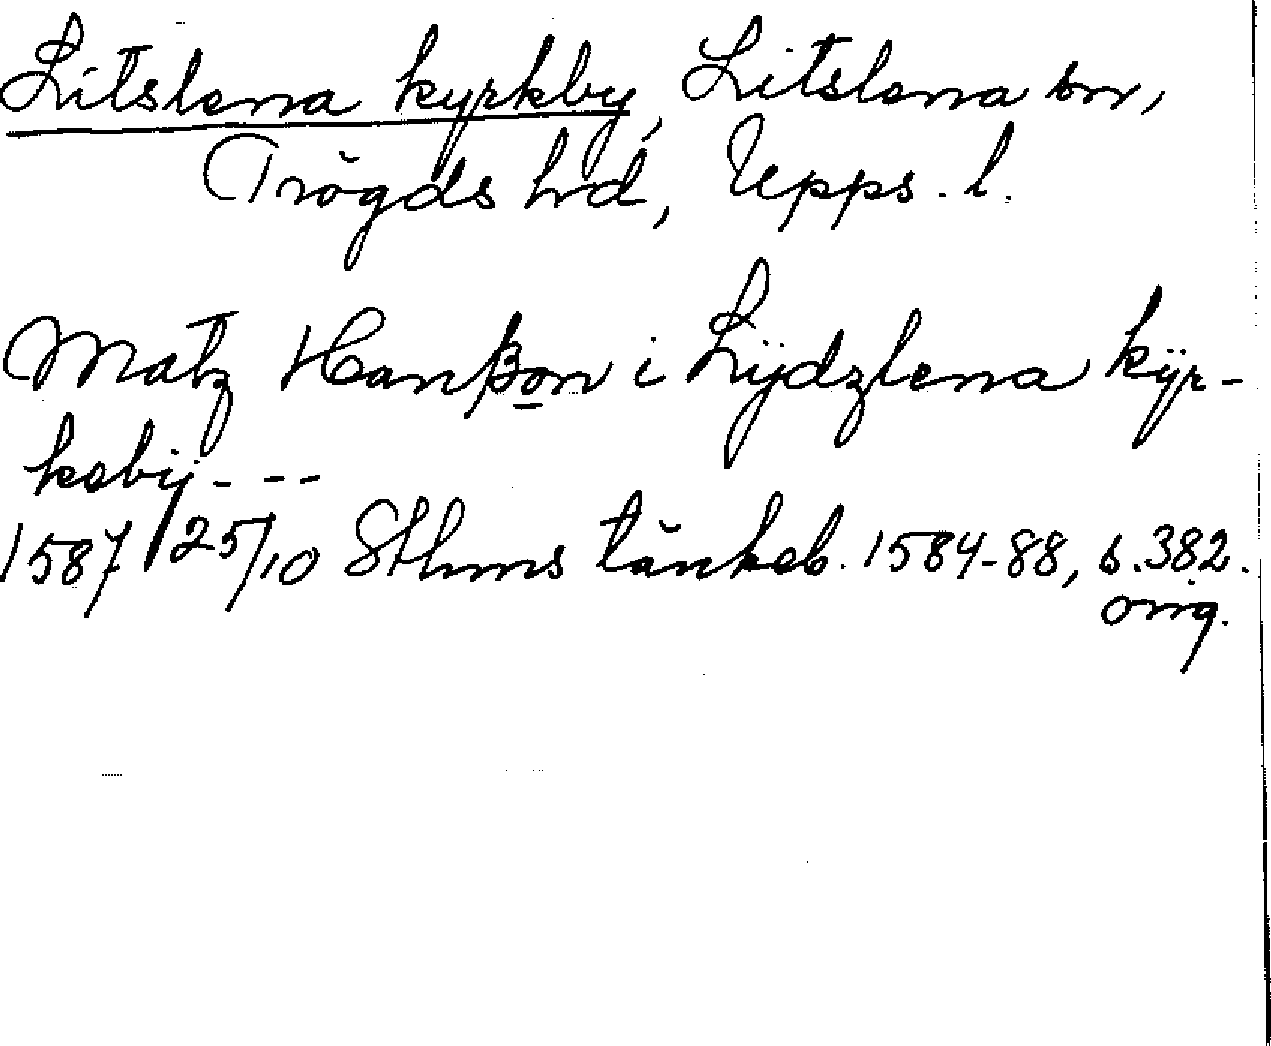 Litslena kyrkby, Litslena sn,
Trögds hd, Upps. l.
Matz Hanßon i Lÿdzlena kÿr-
kebÿ - - -
1587 25/10 Sthms tänkeb. 1584-88, s. 382.
orig.